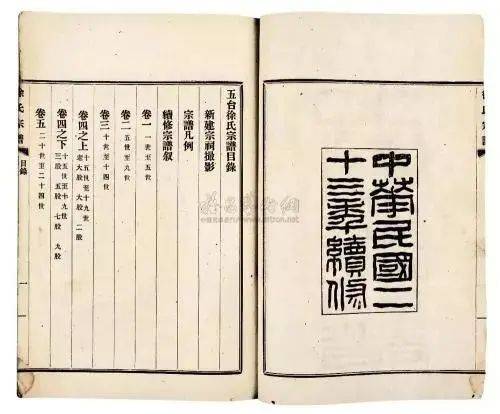 中華民國二
十三年續修
五台徐氏宗譜目錄
新建宗祠撮影
宗譜凡例
續修宗譜叙
卷一 一世至四世
卷二 五世至九世
卷三 十世至十四世
卷四之上 十五世至十九世
老大股 大股 二股
卷四之下 十五世至十九世
三股 五股 七股 九股
卷五 二十世至二十四世
徐氏宗譜 目錄 一